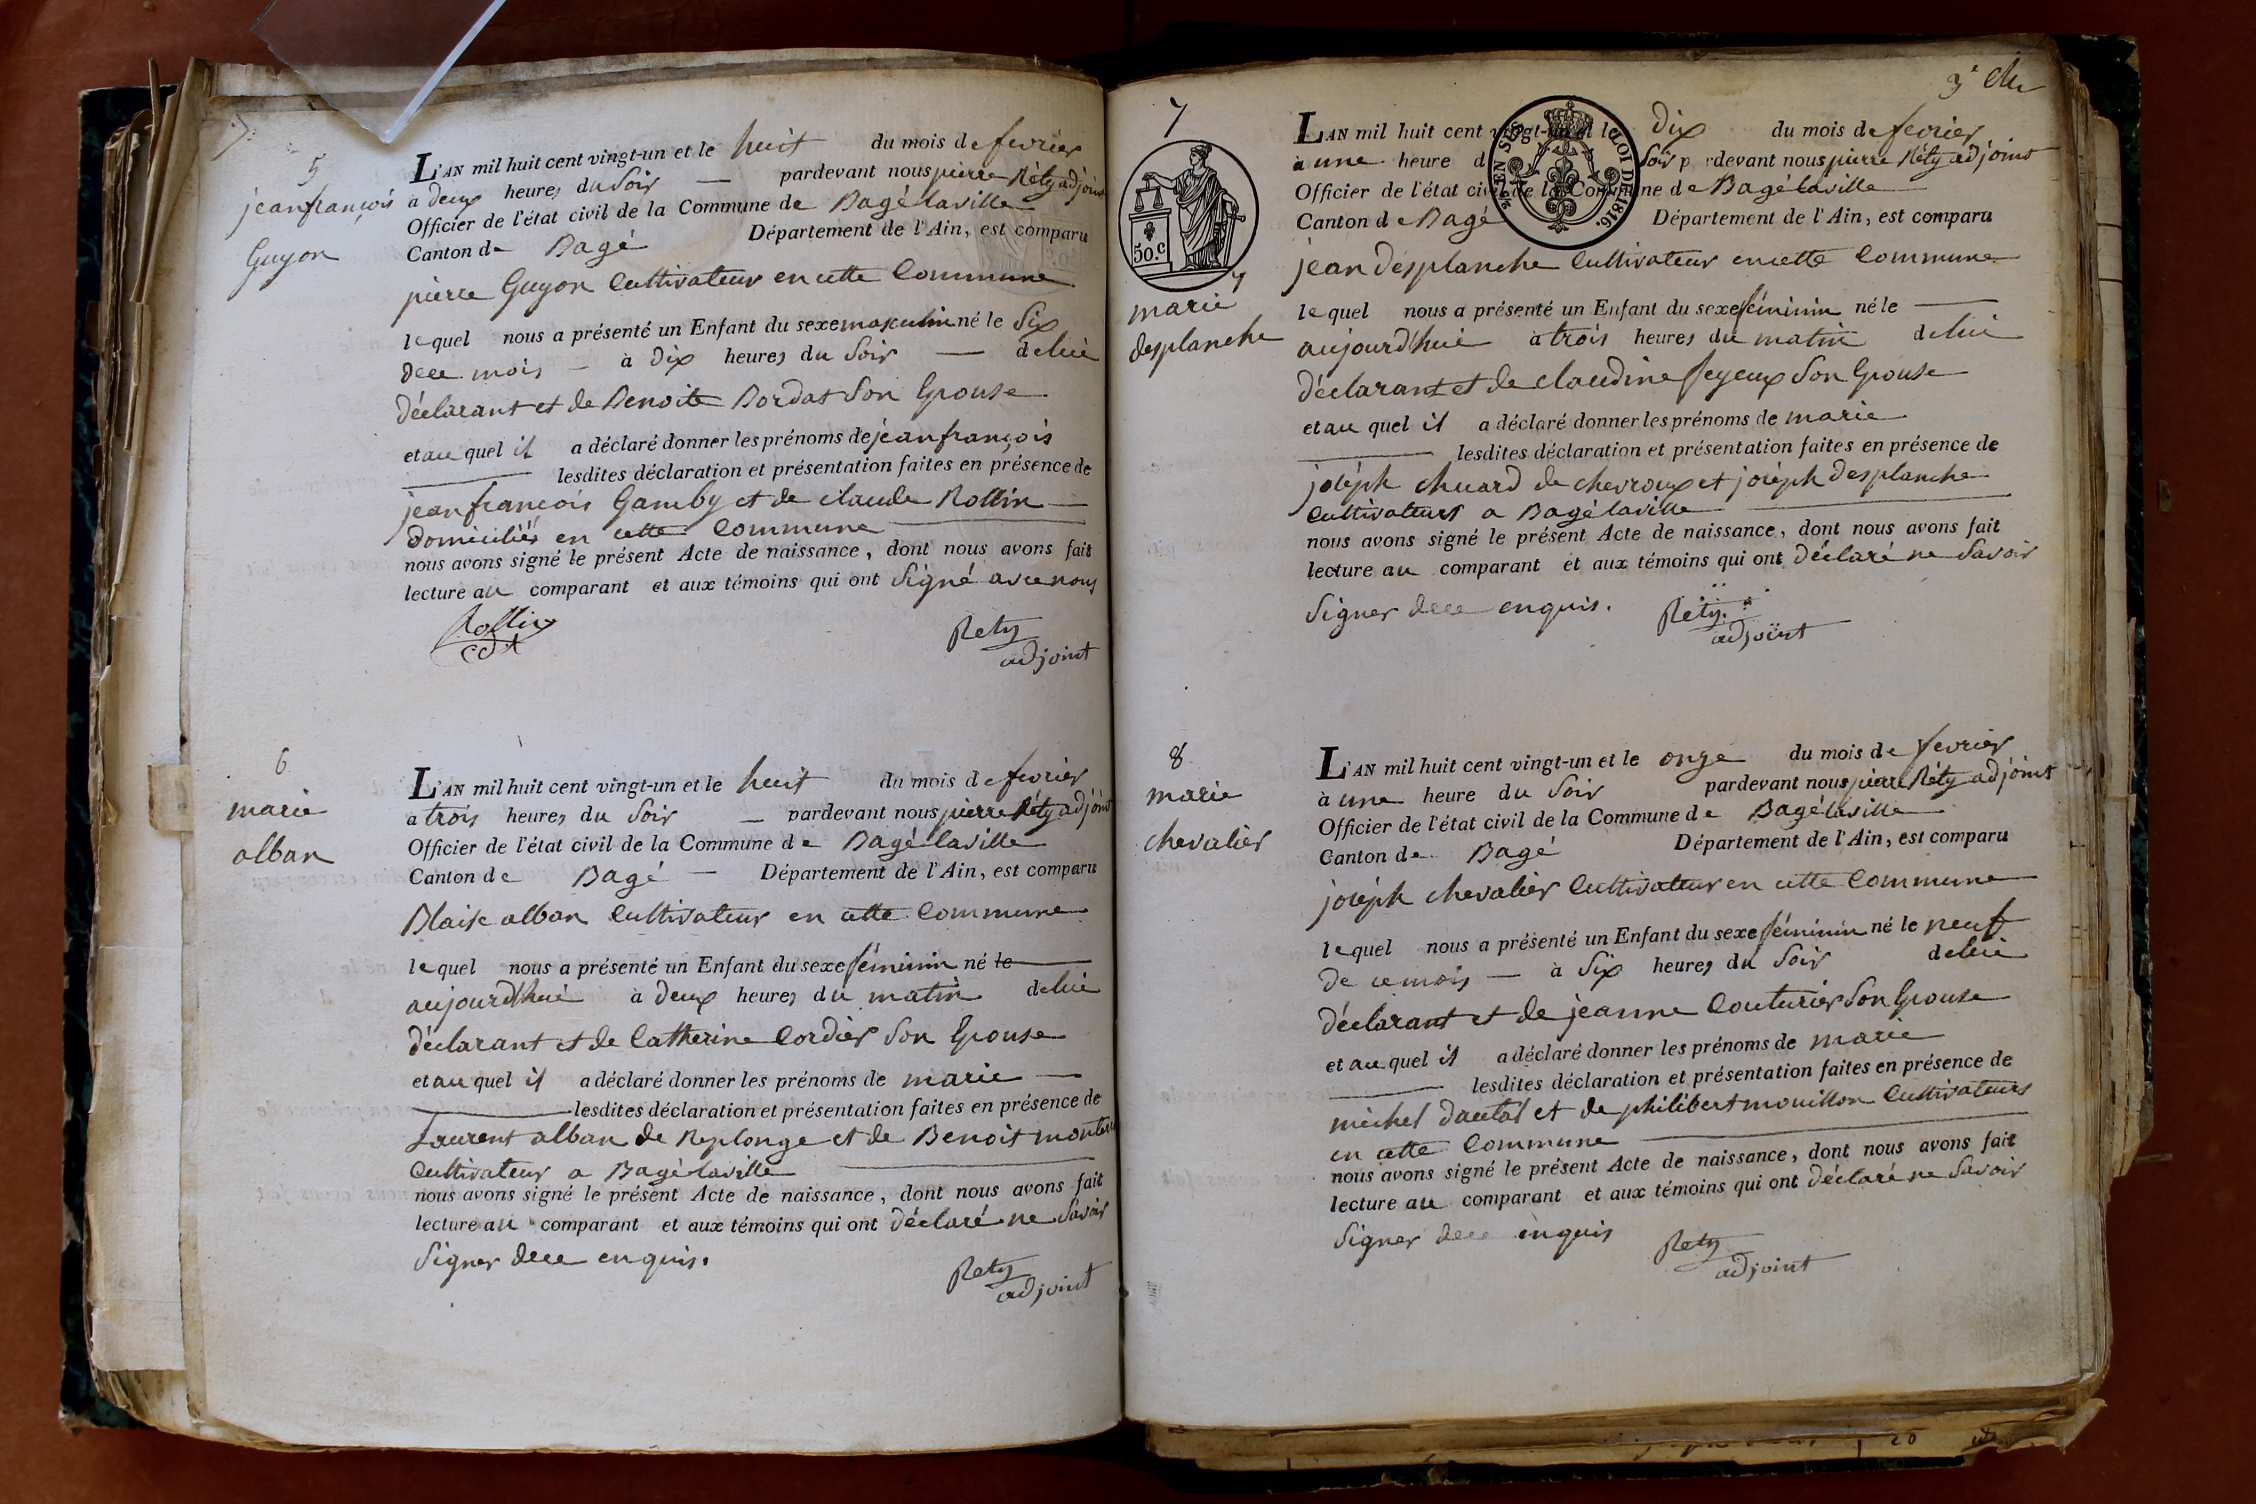 5
jean françois
Guyon
L'AN mil huit cent vingt-un et le huit du mois de fevrier
à deux heures du soir — pardevant nous pierre Réty adjoint
Officier de l'état civil de la Commune de Bagé laville
Canton de Bagé Département de l'Ain, est comparu
pierre Guyon Cultivateur en cette Commune
lequel nous a présenté un Enfant du sexe masculin né le Six
de ce mois — à dix heures du Soir — de lui
déclarant et de Benoite Bordat Son Epouse
et au quel il a déclaré donner les prénoms de jean françois
lesdites déclaration et présentation faites en présence de
jean francois Gamby et de claude Rollin
domiciliés en cette Commune
nous avons signé le présent Acte de naissance, dont nous avons fait
lecture au comparant et aux témoins qui ont Signé avec nous
Rollin
Rety
adjoint
6
marie
alban
L'AN mil huit cent vingt-un et le huit du mois de fevrier
a trois heures du Soir — pardevant nous pierre Réty adjoint
Officier de l'état civil de la Commune de Bagé laville
Canton de Bagé — Département de l'Ain, est comparu
Blaise alban Cultivateur en cette Commune
lequel nous a présenté un Enfant du sexe féminin né le
aujourd'hui à deux heures du matin de lui
déclarant et de Catherine Cordier Son Epouse
et au quel il a déclaré donner les prénoms de marie —
lesdites déclaration et présentation faites en présence de
Laurent alban de Replonge et de Benoit
Cultivateur a Bagé laville
nous avons signé le présent Acte de naissance, dont nous avons fait
lecture au comparant et aux témoins qui ont déclaré ne Savoir
Signer de ce enquis.
Rety
adjoint
7
50.c
marie
desplanche
L'AN mil huit cent vingt-un et le Dix du mois de fevrier
à une heure d Soir pardevant nous pierre Réty adjoint
Officier de l'état civil de la Commune de Bagé laville
Canton de Bagé Département de l'Ain, est comparu
LOI DE 1816.
jean desplanche Cultivateur en cette Commune
lequel nous a présenté un Enfant du sexe féminin né le
aujourd'hui à trois heures du matin de lui
déclarant et de claudine feyeux Son Epouse
et au quel il a déclaré donner les prénoms de marie
lesdites déclaration et présentation faites en présence de
joséph chuard de chevroux et joséph desplanche
Cultivateurs a Bagé laville
nous avons signé le présent Acte de naissance, dont nous avons fait
lecture au comparant et aux témoins qui ont déclaré ne Savoir
Signer de ce enquis.
Rety
adjoint
8
marie
chevalier
L'AN mil huit cent vingt-un et le onze du mois de fevrier
à une heure du Soir pardevant nous pierre Réty adjoint
Officier de l'état civil de la Commune de Bagé laville
Canton de Bagé Département de l'Ain, est comparu
joséph chevalier Cultivateur en cette Commune
lequel nous a présenté un Enfant du sexe féminin né le neuf
de ce mois — à Six heures du Soir de lui
déclarant et de jeanne Couturier Son Epouse
et au quel il a déclaré donner les prénoms de marie
lesdites déclaration et présentation faites en présence de
michel et de philibert mouillon Cultivateurs
en cette Commune
nous avons signé le présent Acte de naissance, dont nous avons fait
lecture au comparant et aux témoins qui ont déclaré ne Savoir
Signer de ce enquis
Rety
adjoint
20